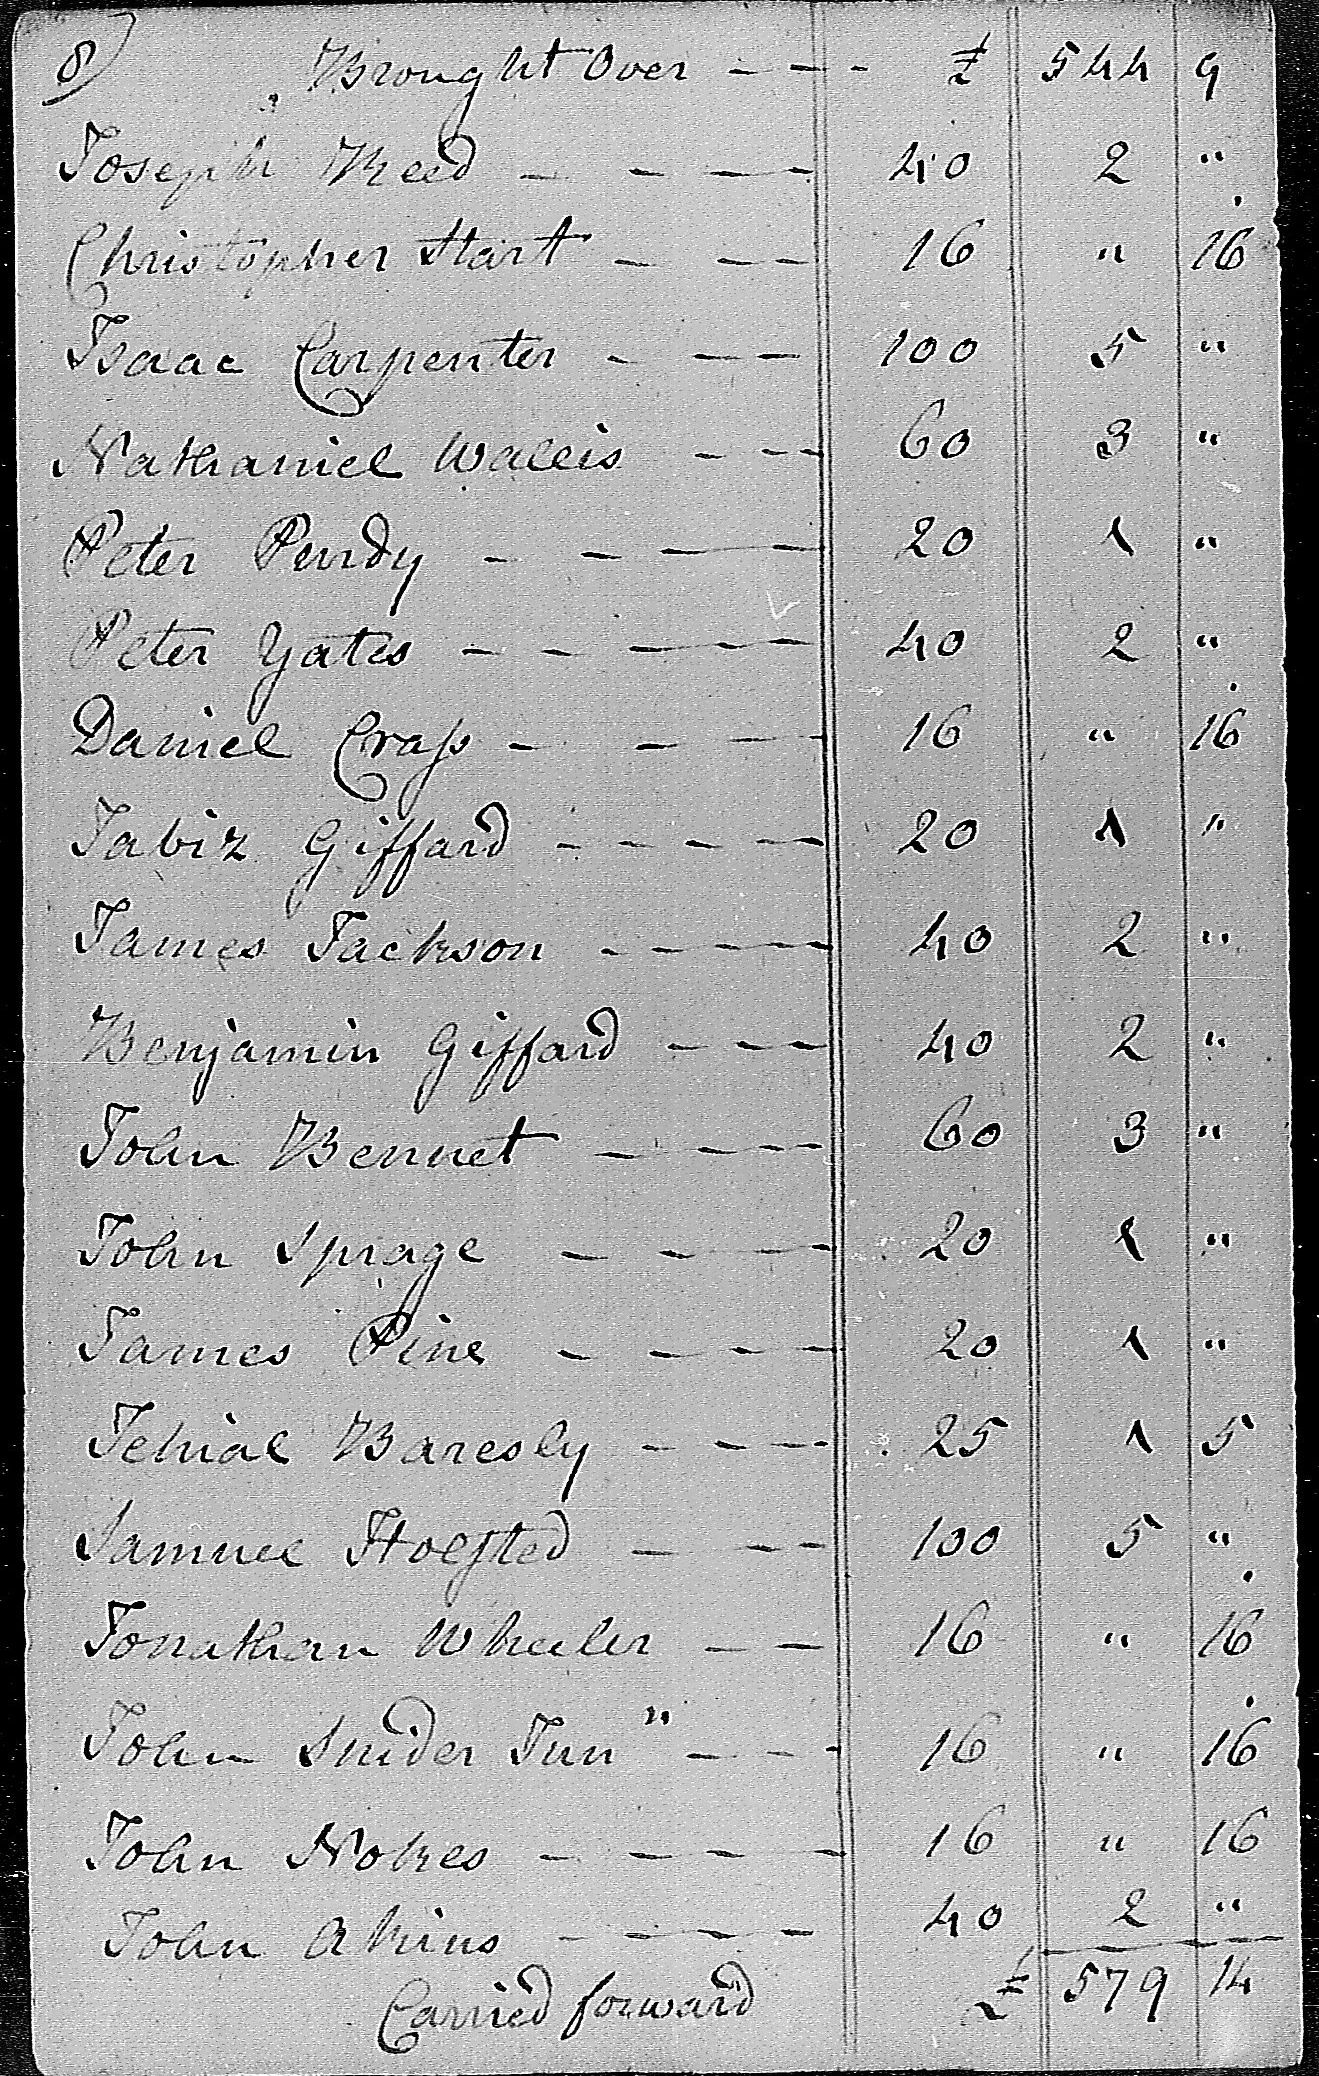 8) Brought Over - - - £ 544 9
Joseph Reed - - - - 40 2 "
Christopher Start - - - 16 " 16
Isaac Carpenter - - - 100 5 "
Nathaniel Wallis - - - 60 3 "
Peter Purdy - - - - 20 1 "
Peter Yates - - - - - 40 2 "
Daniel Craſs - - - 16 " 16
Jabiz Giffard - - - - 20 1 "
James Jackson - - - - - 40 2 "
Benjamin Giffard - - - - 40 2 "
John Bennet - - - - 60 3 "
John Sprage - - - 20 1 "
James Pine - - - - 20 1 "
Jehial Baresly - - - - 25 1 5
Samuel Holſted - - - 100 5 "
Jonathan Wheeler - - 16 " 16
John Snider Jun" - - - 16 " 16
John Nokes - - - - - 16 " 16
John Akins - - - - 40 2 "
Carried forward £ 579 14